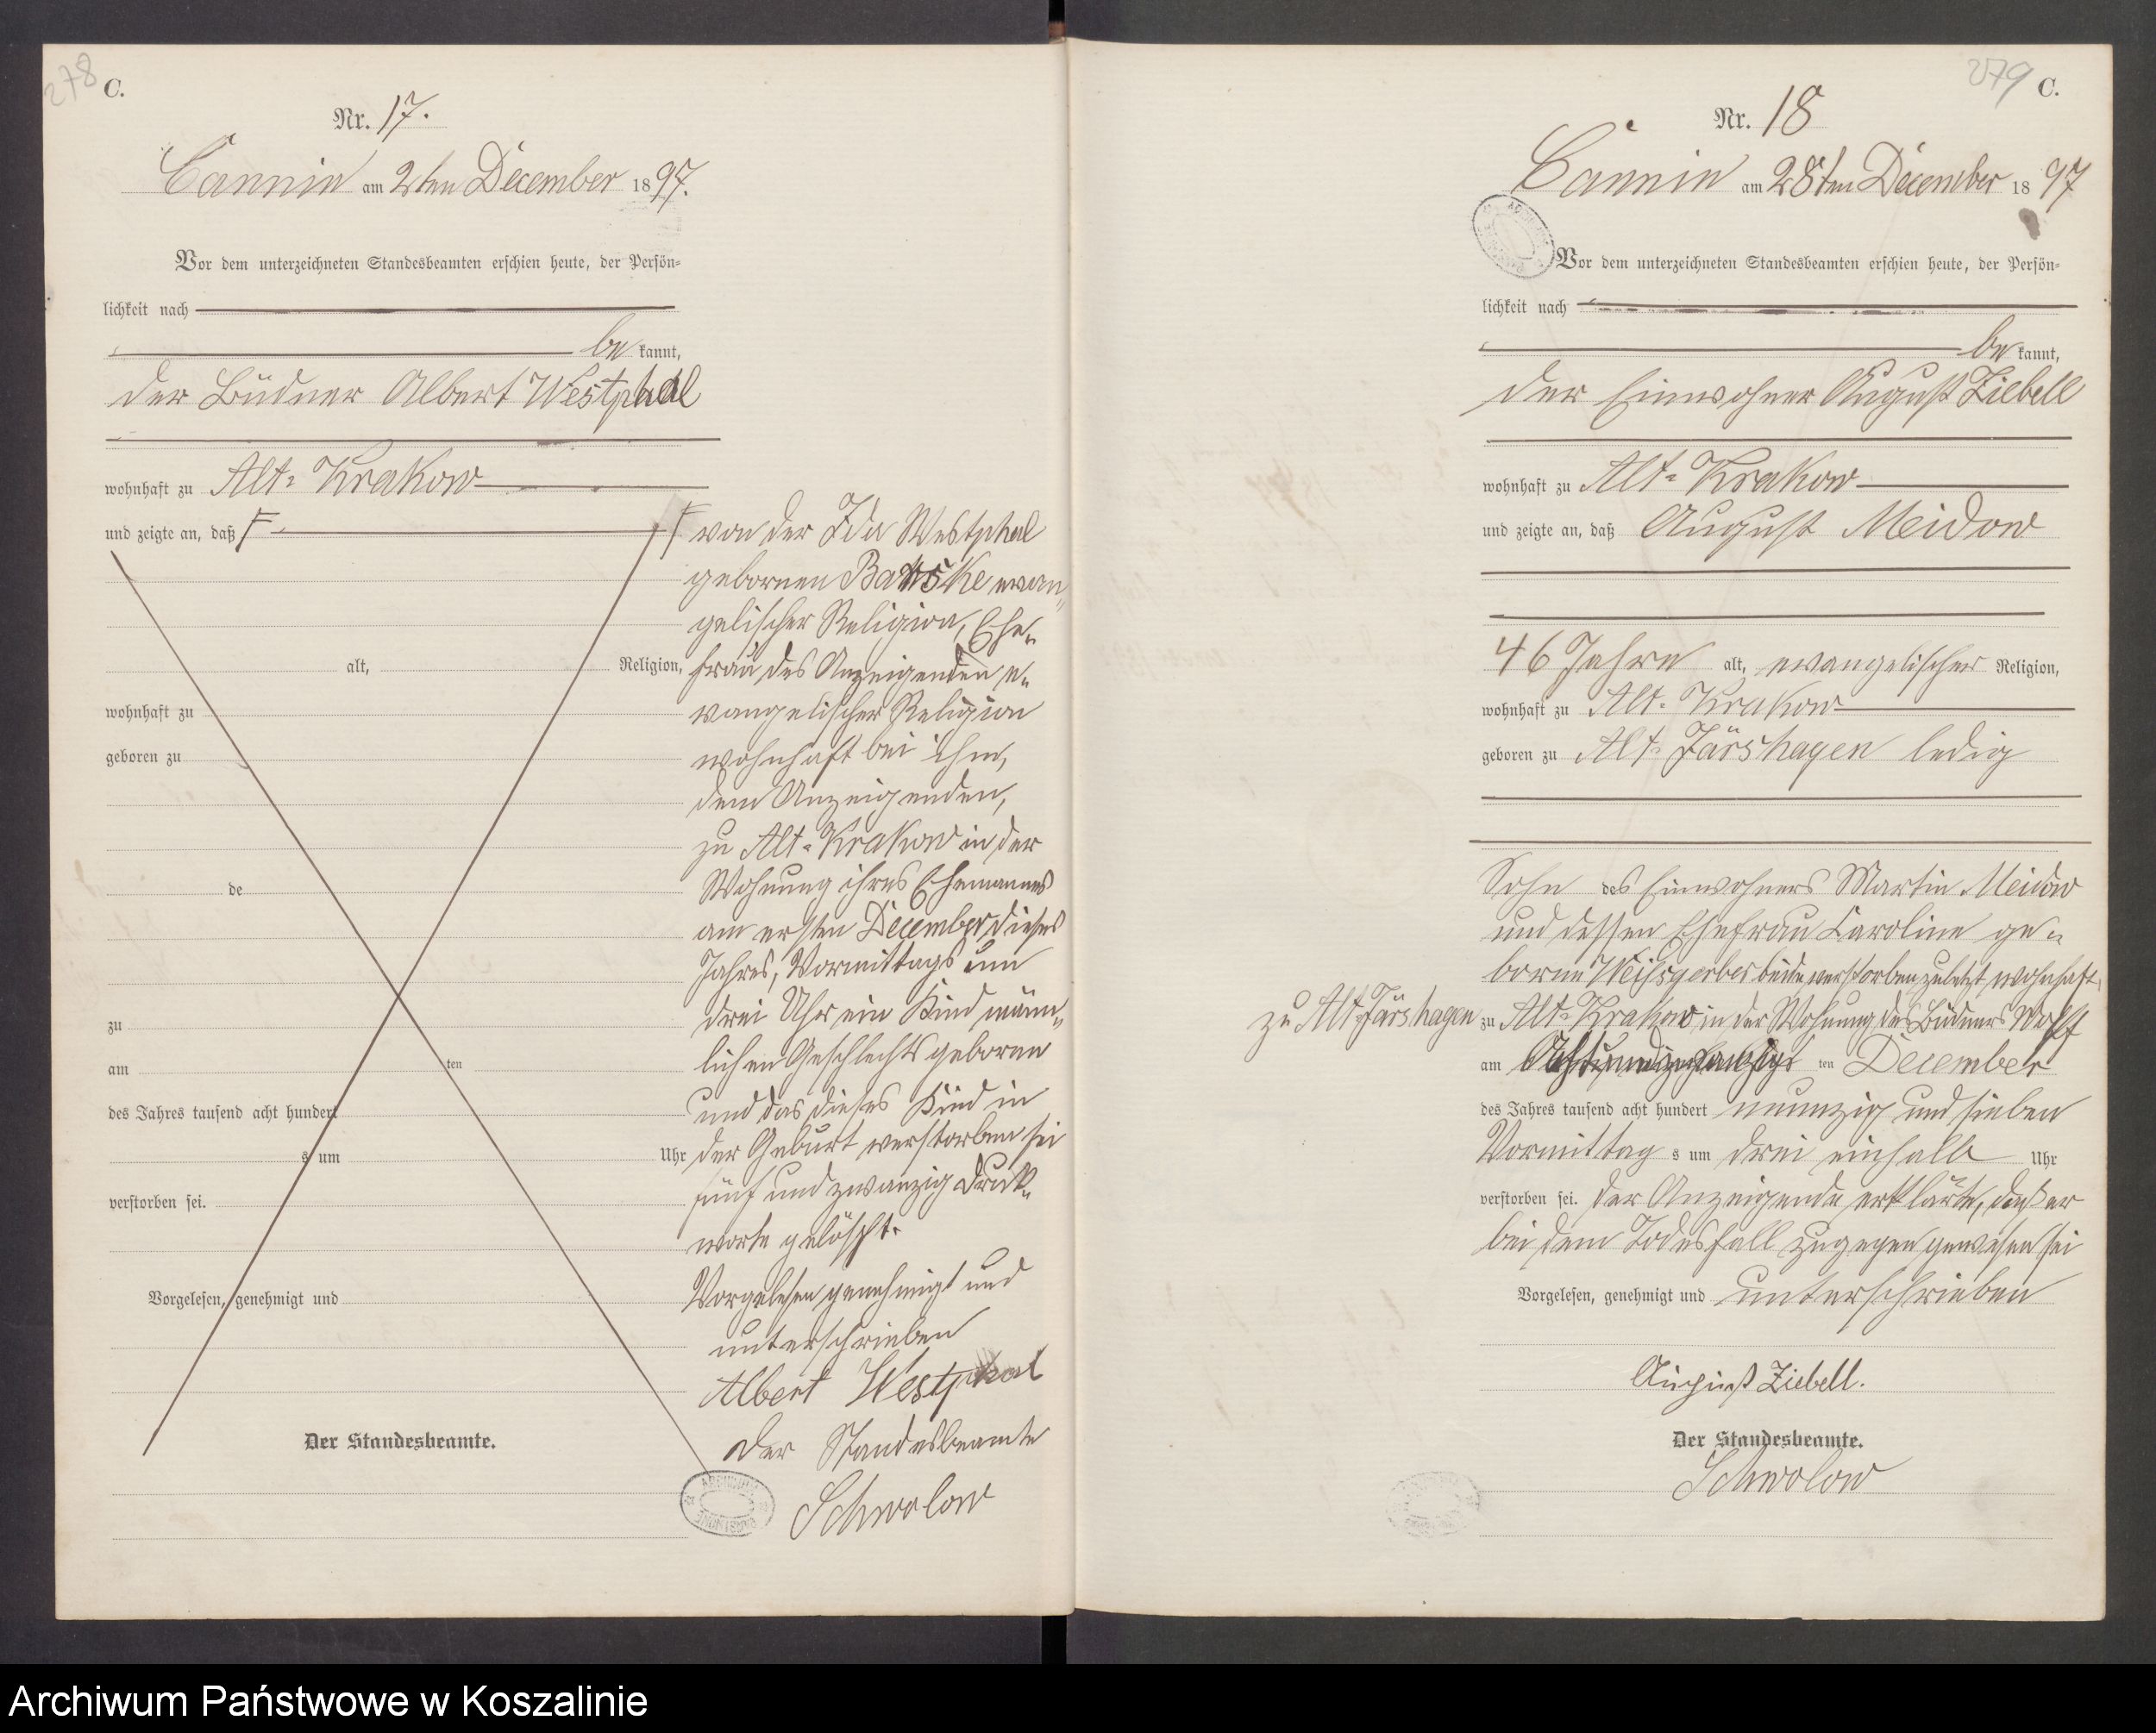 278
C.
Nr. 17.
Cannin am 2ten December 1897.
Vor dem unterzeichneten Standesbeamten erschien heute, der Persön-
lichkeit nach
be kannt,
der Büdner Albert Westphal
wohnhaft zu Alt-Krakow
und zeigte an, daß F
alt, Religion,
wohnhaft zu
geboren zu
de
zu
am ten
des Jahres tausend acht hundert
s um Uhr
verstorben sei.
Vorgelesen, genehmigt und
Der Standesbeamte.
F von der Ida Westphal
gebornen Banske evan-
gelischer Religion, Ehe-
frau des Anzeigenden e-
vangelischer Religion
wohnhaft bei ihm,
dem Anzeigenden,
zu Alt-Krakow in der
Wohnung ihres Ehemannes
am ersten December dieses
Jahres, Vormittags um
drei Uhr ein Kind männ-
lichen Geschlechts geboren
und das dieses Kind in
der Geburt verstorben sei
fünf und zwanzig Druck-
worte gelöscht.
Vorgelesen genehmigt und
unterschrieben
Albert Westphal
Der Standesbeamte
Schwolow
279
C.
Nr. 18
Cannin am 28ten December 1897
Vor dem unterzeichneten Standesbeamten erschien heute, der Persön-
lichkeit nach
be kannt,
der Einwohner August Ziebell
wohnhaft zu Alt-Krakow
und zeigte an, daß August Meidow
46 Jahre alt, evangelischer Religion,
wohnhaft zu Alt-Krakow
geboren zu Alt-Järshagen ledig
Sohn des Einwohners Martin Meidow
und dessen Ehefrau Caroline ge-
borne Weißgerber beide verstorben zuletzt wohnhaft
zu Alt-Järshagen
zu Alt-Krakow in der Wohnung des Büdners Wolff
am Achtundzwanzigs ten December
des Jahres tausend acht hundert neunzig und sieben
Vormittag s um drei einhalb Uhr
verstorben sei. Der Anzeigende erklärte, daß er
bei dem Todesfall zugegen gewesen sei
Vorgelesen, genehmigt und unterschrieben
August Ziebell.
Der Standesbeamte.
Schwolow
Archiwum Państwowe w Koszalinie